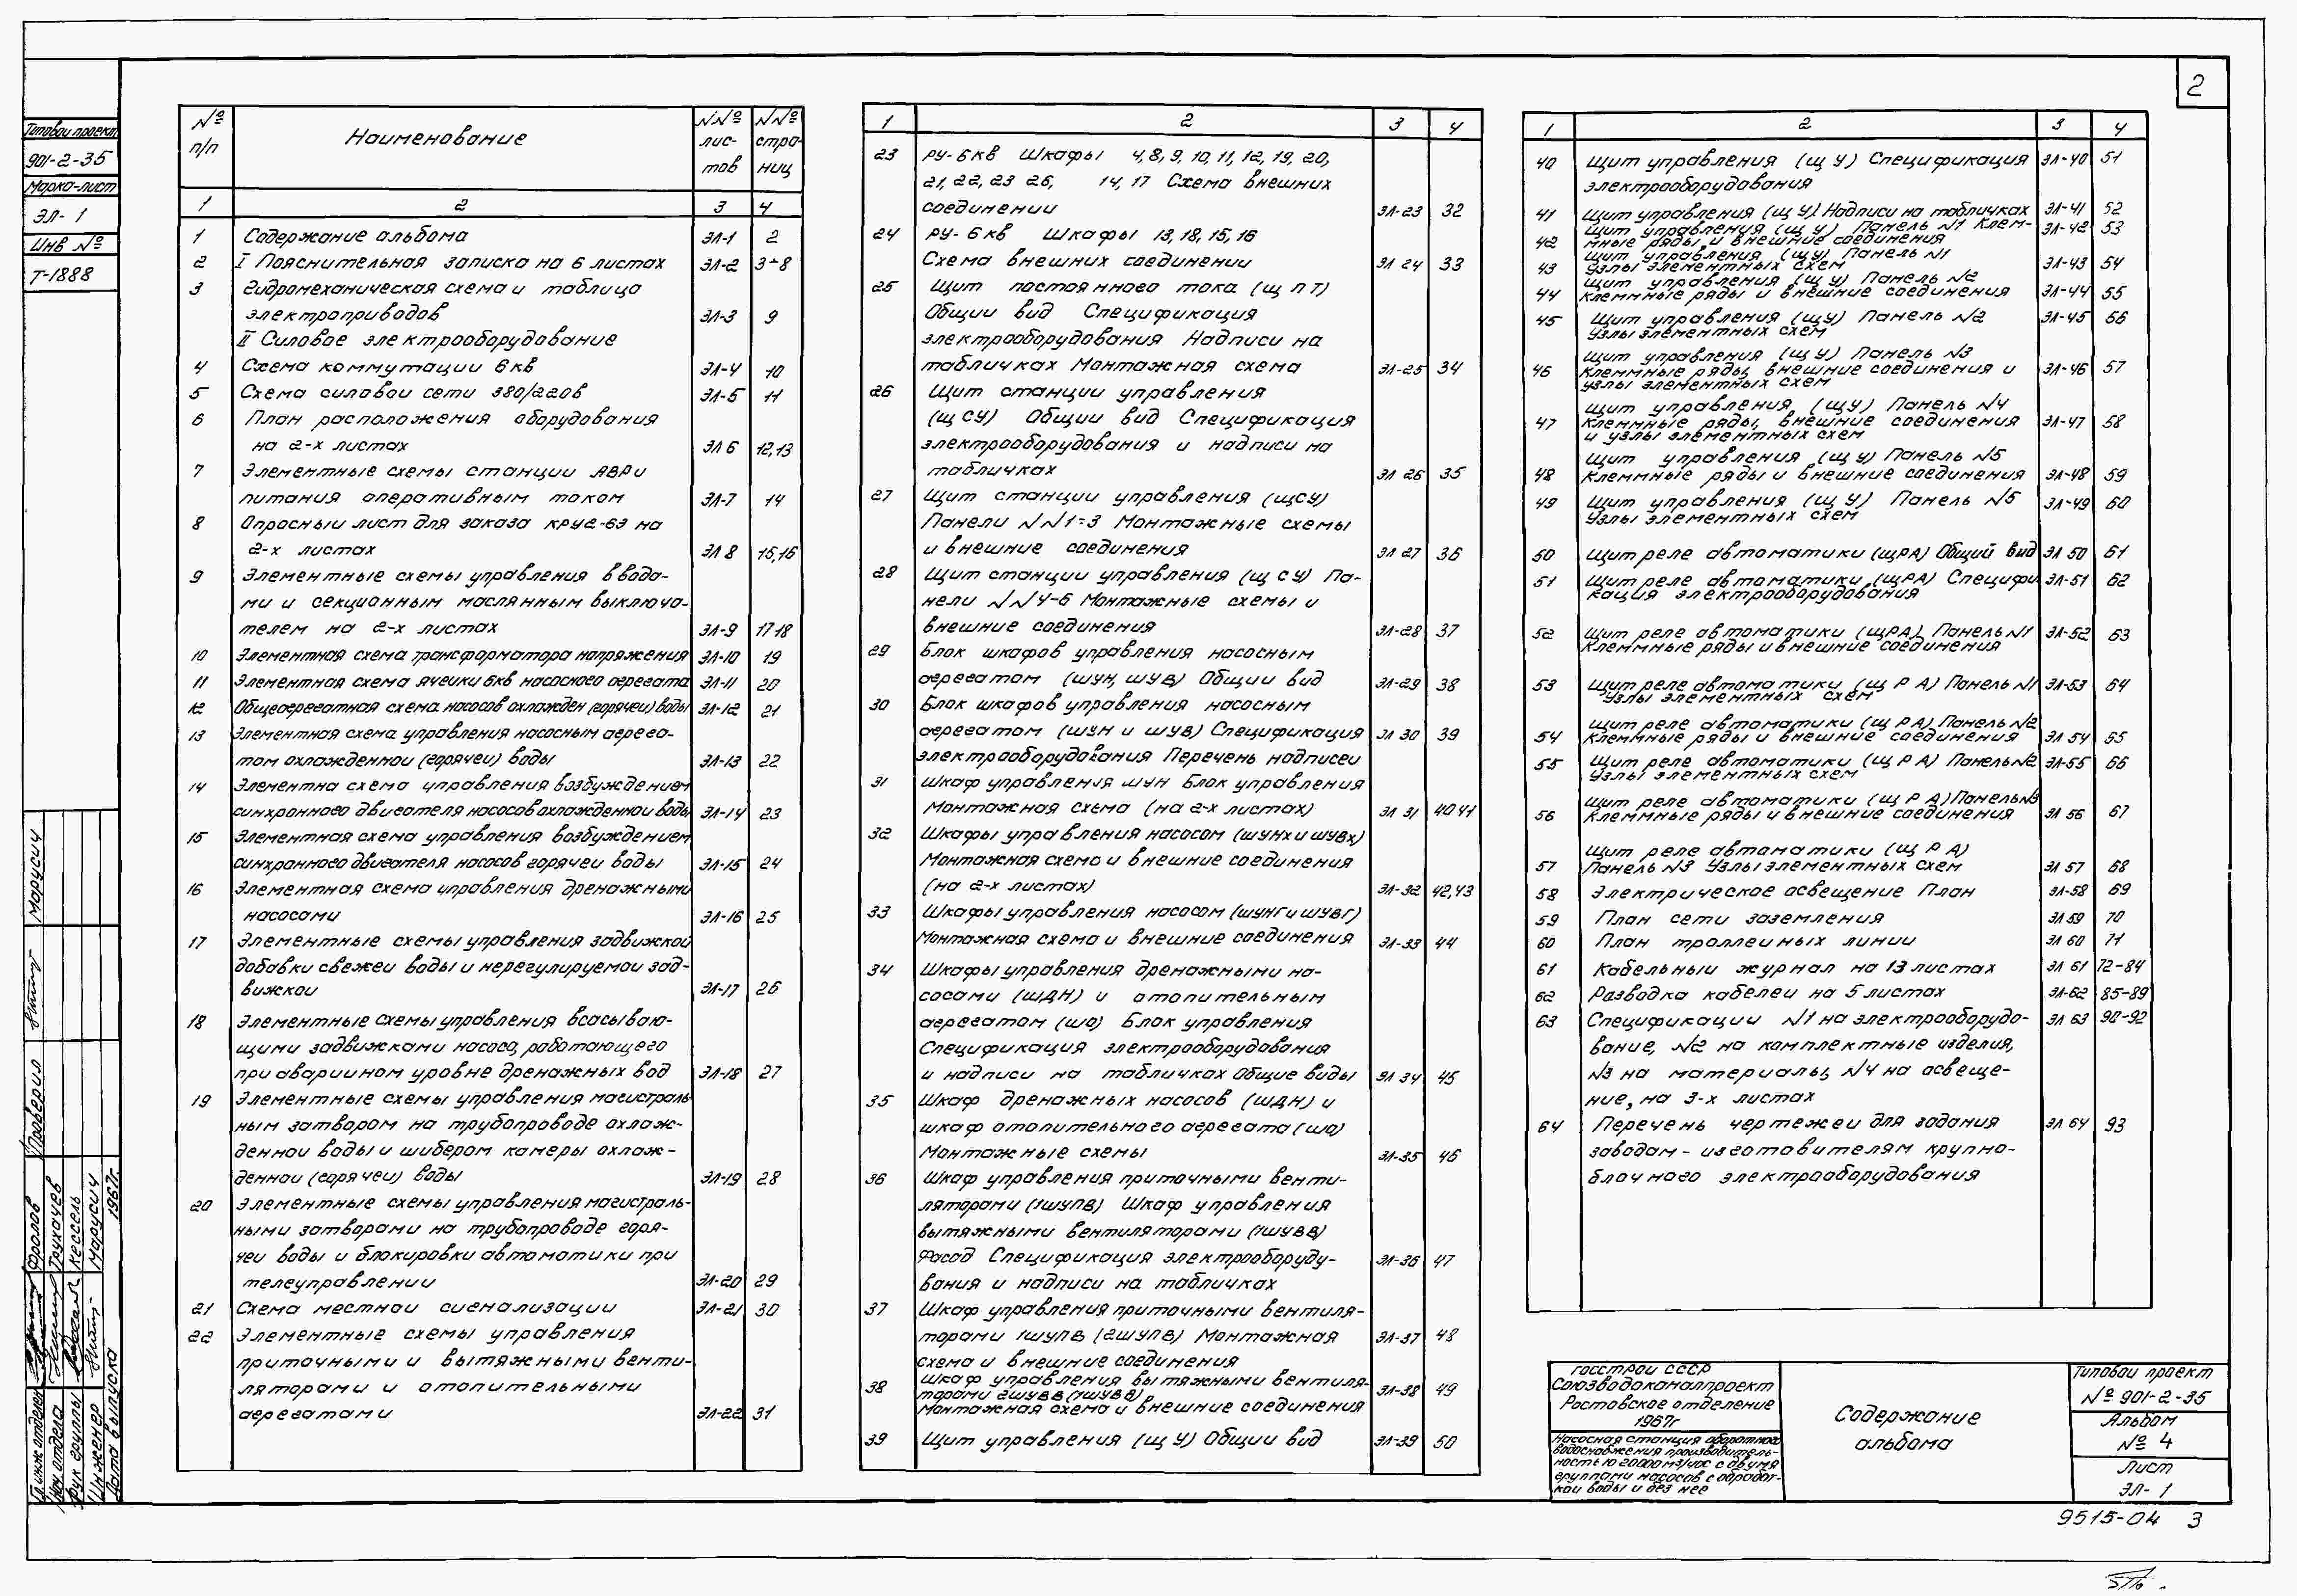 2
Типовой проект
901-2-35
Марка-лист
ЭЛ-1
Инв №
Т-1888
№ п/п
Наименование
№№ листов
№№ страниц
1 2 3 4
1 Содержание альбома ЭЛ-1 2
2 I Пояснительная записка на 6 листах ЭЛ-2 3÷8
3 Гидромеханическая схема и таблица
электроприводов ЭЛ-3 9
II Силовое электрооборудование
4 Схема коммутации 6кв ЭЛ-4 10
5 Схема силовой сети 380/220в ЭЛ-5 11
6 План расположения оборудования
на 2-х листах ЭЛ 6 12,13
7 Элементные схемы станции ЯВРи
питания оперативным током ЭЛ-7 14
8 Опросный лист для заказа КРУ2-6Э на
2-х листах ЭЛ 8 15,16
9 Элементные схемы управления ввода-
ми и секционным маслянным выключа-
телем на 2-х листах ЭЛ-9 17 18
10 Элементная схема трансформатора напряжения ЭЛ-10 19
11 Элементная схема ячейки 6кв насосного агрегата ЭЛ-11 20
12 Общеагрегатная схема насосов охлажден (горячей) воды ЭЛ-12 21
13 Элементная схема управления насосным агрега-
том охлажденной (горячей) воды ЭЛ-13 22
14 Элементна схема управления возбуждением
синхронного двигателя насосов охлажденной воды ЭЛ-14 23
15 Элементная схема управления возбуждением
синхронного двигателя насосов горячей воды ЭЛ-15 24
16 Элементная схема управления дренажными
насосами ЭЛ-16 25
17 Элементные схемы управления задвижкой
добавки свежей воды и нерегулируемой зад-
вижкой ЭЛ-17 26
18 Элементные схемы управления всасываю-
щими задвижками насоса, работающего
при аварийном уровне дренажных вод ЭЛ-18 27
19 Элементные схемы управления магистраль-
ным затвором на трубопроводе охлаж-
денной воды и шибером камеры охлаж-
денной (горячей) воды ЭЛ-19 28
20 Элементные схемы управления магистраль-
ными затворами на трубопроводе горя-
чей воды и блокировки автоматики при
телеуправлении ЭЛ-20 29
21 Схема местной сигнализации ЭЛ-21 30
22 Элементные схемы управления
приточными и вытяжными венти-
ляторами и отопительными
агрегатами ЭЛ-22 31
1 2 3 4
23 РУ-6кв Шкафы 4,8,9,10,11,12,19,20,
21,22,23 26, 14,17 Схема внешних
соединении ЭЛ-23 32
24 РУ-6кв Шкафы 13,18,15,16
Схема внешних соединении ЭЛ 24 33
25 Щит постоянного тока (щ п т)
Общий вид Спецификация
электрооборудования Надписи на
табличках Монтажная схема ЭЛ-25 34
26 Щит станции управления
(щ СУ) Общий вид Спецификация
электрооборудования и надписи на
табличках ЭЛ 26 35
27 Щит станции управления (щСУ)
Панели NN1÷3 Монтажные схемы
и внешние соединения ЭЛ 27 36
28 Щит станции управления (щ СУ) Па-
нели NN4-6 Монтажные схемы и
внешние соединения ЭЛ-28 37
29 Блок шкафов управления насосным
агрегатом (шун, шув) Общий вид ЭЛ-29 38
30 Блок шкафов управления насосным
агрегатом (шун и шув) Спецификация ЭЛ 30 39
электрооборудования Перечень надписей
31 Шкаф управления шун Блок управления
Монтажная схема (на 2-х листах) ЭЛ 31 40 41
32 Шкафы управления насосом (шунх и шувх)
Монтажная схема и внешние соединения
(на 2-х листах) ЭЛ-32 42,43
33 Шкафы управления насосом (шунг и шувг)
Монтажная схема и внешние соединения ЭЛ-33 44
34 Шкафы управления дренажными на-
сосами (шдн) и отопительным
агрегатом (шо) Блок управления
Спецификация электрооборудования
и надписи на табличках Общие виды ЭЛ 34 45
35 Шкаф дренажных насосов (шдн) и
шкаф отопительного агрегата (шо)
Монтажные схемы ЭЛ-35 46
36 Шкаф управления приточными венти-
ляторами (1шупв) Шкаф управления
вытяжными вентиляторами (1шувв)
Фасад Спецификация электрооборуду- ЭЛ-36 47
вания и надписи на табличках
37 Шкаф управления приточными вентиля-
торами 1шупв (2шупв) Монтажная ЭЛ-37 48
схема и внешние соединения
38 Шкаф управления вытяжными вентиля-
торами 2шувв (1шувв) ЭЛ-38 49
Монтажная схема и внешние соединения
39 Щит управления (щ У) Общий вид ЭЛ-39 50
1 2 3 4
40 Щит управления (щ У) Спецификация ЭЛ-40 51
электрооборудования
41 Щит управления (щ У) Надписи на табличках ЭЛ-41 52
Щит управления (щ У) Панель N1 Клем- ЭЛ-42 53
42 мные ряды и внешние соединения
Щит управления (щу) Панель N1
43 Узлы элементных схем ЭЛ-43 54
Щит управления (щ У) Панель N2
44 Клеммные ряды и внешние соединения ЭЛ-44 55
45 Щит управления (щу) Панель N2 ЭЛ-45 56
Узлы элементных схем
Щит управления (щ У) Панель N3
46 Клеммные ряды, внешние соединения и ЭЛ-46 57
узлы элементных схем
Щит управления (щУ) Панель N4
47 Клеммные ряды, внешние соединения ЭЛ-47 58
и узлы элементных схем
Щит управления (щ у) Панель N5
48 Клеммные ряды и внешние соединения ЭЛ-48 59
49 Щит управления (щ У) Панель N5 ЭЛ-49 60
Узлы элементных схем
50 Щит реле автоматики (щРА) Общий вид ЭЛ 50 61
51 Щит реле автоматики (щРА) Специфи ЭЛ-51 62
кация электрооборудования
52 Щит реле автоматики (щРА) Панель N1 ЭЛ-52 63
Клеммные ряды и внешние соединения
53 Щит реле автоматики (щ Р А) Панель N1 ЭЛ-53 64
Узлы элементных схем
Щит реле автоматики (щ Р А) Панель N2
54 Клеммные ряды и внешние соединения ЭЛ 54 65
55 Щит реле автоматики (щ Р А) Панель N2 ЭЛ-55 66
Узлы элементных схем
Щит реле автоматики (щ Р А) Панель N3
56 Клеммные ряды и внешние соединения ЭЛ 56 67
Щит реле автоматики (щ Р А)
57 Панель N3 Узлы элементных схем ЭЛ 57 68
58 Электрическое освещение План ЭЛ-58 69
59 План сети заземления ЭЛ 59 70
60 План троллейных линии ЭЛ 60 71
61 Кабельный журнал на 13 листах ЭЛ 61 72-84
62 Разводка кабелей на 5 листах ЭЛ-62 85-89
63 Спецификации N1 на электрооборудо- ЭЛ 63 90-92
вание, N2 на комплектные изделия,
N3 на материалы, N4 на освеще-
ние, на 3-х листах
64 Перечень чертежей для задания ЭЛ 64 93
заводам-изготовителям крупно-
блочного электрооборудования
Марусич
Проверил
Фролов
Трухачев
Кессель
Марусич
1967г.
Гл инж отделен
Нач отдела
Рук группы
Инженер
Дата выпуска
Госстрой СССР
Союзводоканалпроект
Ростовское отделение
1967г
Насосная станция оборотного
водоснабжения производитель-
ностью 20000 м3/час с двумя
группами насосов с обработ-
кой воды и без нее
Содержание
альбома
Типовой проект
№ 901-2-35
Альбом
№ 4
Лист
ЭЛ-1
9515-04 3